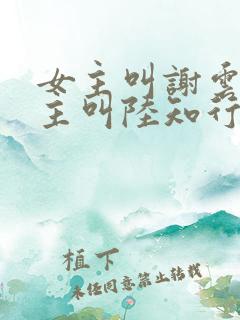 女主叫謝雲
主叫陸知行
植下
未经同意禁止转载